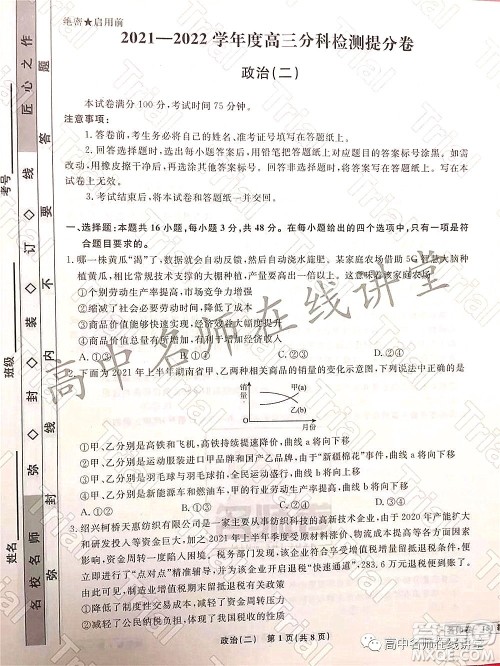 绝密★启用前
2021—2022学年度高三分科检测提分卷
政治(二)
本试卷满分100分,考试时间75分钟。
注意事项:
1.答卷前,考生务必将自己的姓名、准考证号填写在答题纸上。
2.回答选择题时,选出每小题答案后,用铅笔把答题纸上对应题目的答案标号涂黑。如需改
动,用橡皮擦干净后,再选涂其他答案标号。回答非选择题时,将答案写在答题纸上。写在本试
卷上无效。
3.考试结束后,将本试卷和答题纸一并交回。
一、选择题:本题共16小题,每小题3分,共48分。在每小题给出的四个选项中,只有一项是符
合题目要求的。
1.哪一株黄瓜“渴”了,数据就会自动反馈,然后自动浇水施肥。某家庭农场借助5G智慧大棚种
植黄瓜,相比常规技术支撑的大棚种植,产量要高出一倍以上。这意味着该家庭农场
①个别劳动生产率提高,市场竞争力增强
②缩减了社会必要劳动时间,成本降低
③商品价值能够快速实现,经济效益大幅度提升
④商品价值总量增加,劳动生产率提高
A.①③
B.①④
C.②③
D.②④
2.下面为2021年上半年湖南省甲、乙两种相关商品的销量的变化示意图,下列说法中正确的是
销量
甲(a)
乙(b)
O
月份
①甲、乙分别是高铁和飞机,高铁持续提速降价,曲线a将向下移
②甲、乙分别是运动服装进口品牌和国产乙品牌,由于“新疆棉花”事件,曲线b将向上移
③甲、乙分别是羽毛球和羽毛球拍,全民健身的热潮,曲线a将向上移
④甲、乙分别是新能源车和燃油车,受补贴政策的影响,曲线b将向下移
A.①②
B.①③
C.②④
D.③④
3.绍兴柯桥天惠纺织有限公司是一家主要从事纺织科技的高新技术企业,由于2020年产能扩大
和研发投入等资金巨大,加之2021年上半年季度受原材料涨价、订单下降等不利因素的影响,
公司面临资金周转不足、流动成本提高等各方面的不利影响。当地税务部门在了解情况后,立
即进行了“点对点”精准辅导,并为该公司开启退税“快速通道”,283.6万元退税很快到账,缓
解了企业资金周转压力。实施增值税期末留抵退税政策,符合享受增值税增量留抵退税的企
业由此受益。实行增值税期末留抵退税有关政策
①能够降低纳税人的税收负担,激发市场主体活力
政治(二) 第1页(共8页)
考号
班级
姓名
匠心之作
名校名师
答题
弥 封 装 订 线
内不
高中名师在线讲堂
Trial
高中名师在线讲堂